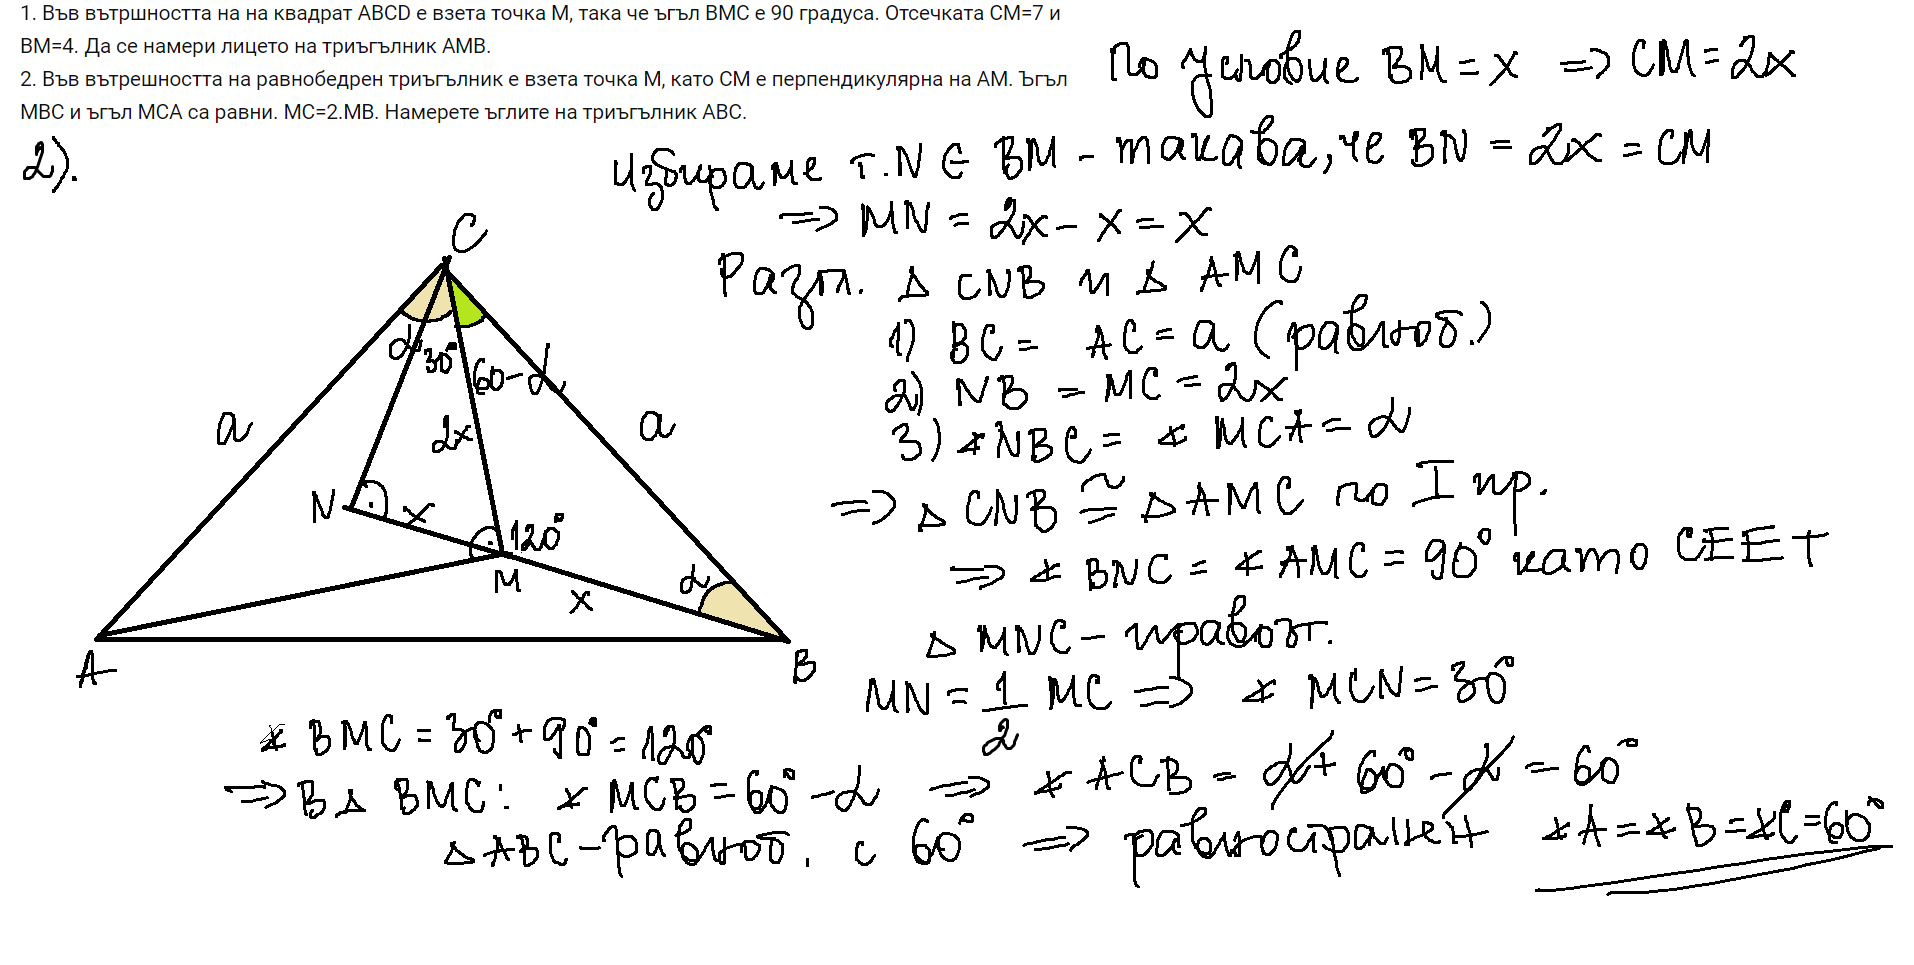 1. Във вътршността на на квадрат ABCD е взета точка М, така че ъгъл ВМС е 90 градуса. Отсечката СМ=7 и
ВМ=4. Да се намери лицето на триъгълник АМВ.
2. Във вътрешността на равнобедрен триъгълник е взета точка М, като СМ е перпендикулярна на АМ. Ъгъл
МВС и ъгъл МСА са равни. МС=2.МВ. Намерете ъглите на триъгълник АВС.
По условие BM = x => CM = 2x
2).
Избираме т. N ∈ BM - такава, че BN = 2x = CM
=> MN = 2x - x = x
Разгл. △ CNB и △ AMC
1) BC = AC = a (равноб.)
2) NB = MC = 2x
3) ∢ NBC = ∢ MCA = α
=> △ CNB ≅ △ AMC по I пр.
=> ∢ BNC = ∢ AMC = 90° като СЕЕТ
△ MNC - правоъг.
MN = 1/2 MC => ∢ MCN = 30°
C
α
30°
60-α
a
2x
a
N
x
120°
M
x
α
A
B
∢ BMC = 30° + 90° = 120°
=> В △ BMC: ∢ MCB = 60° - α => ∢ ACB = α + 60° - α = 60°
△ ABC - равноб. с 60° => равностранен ∢ A = ∢ B = ∢ C = 60°